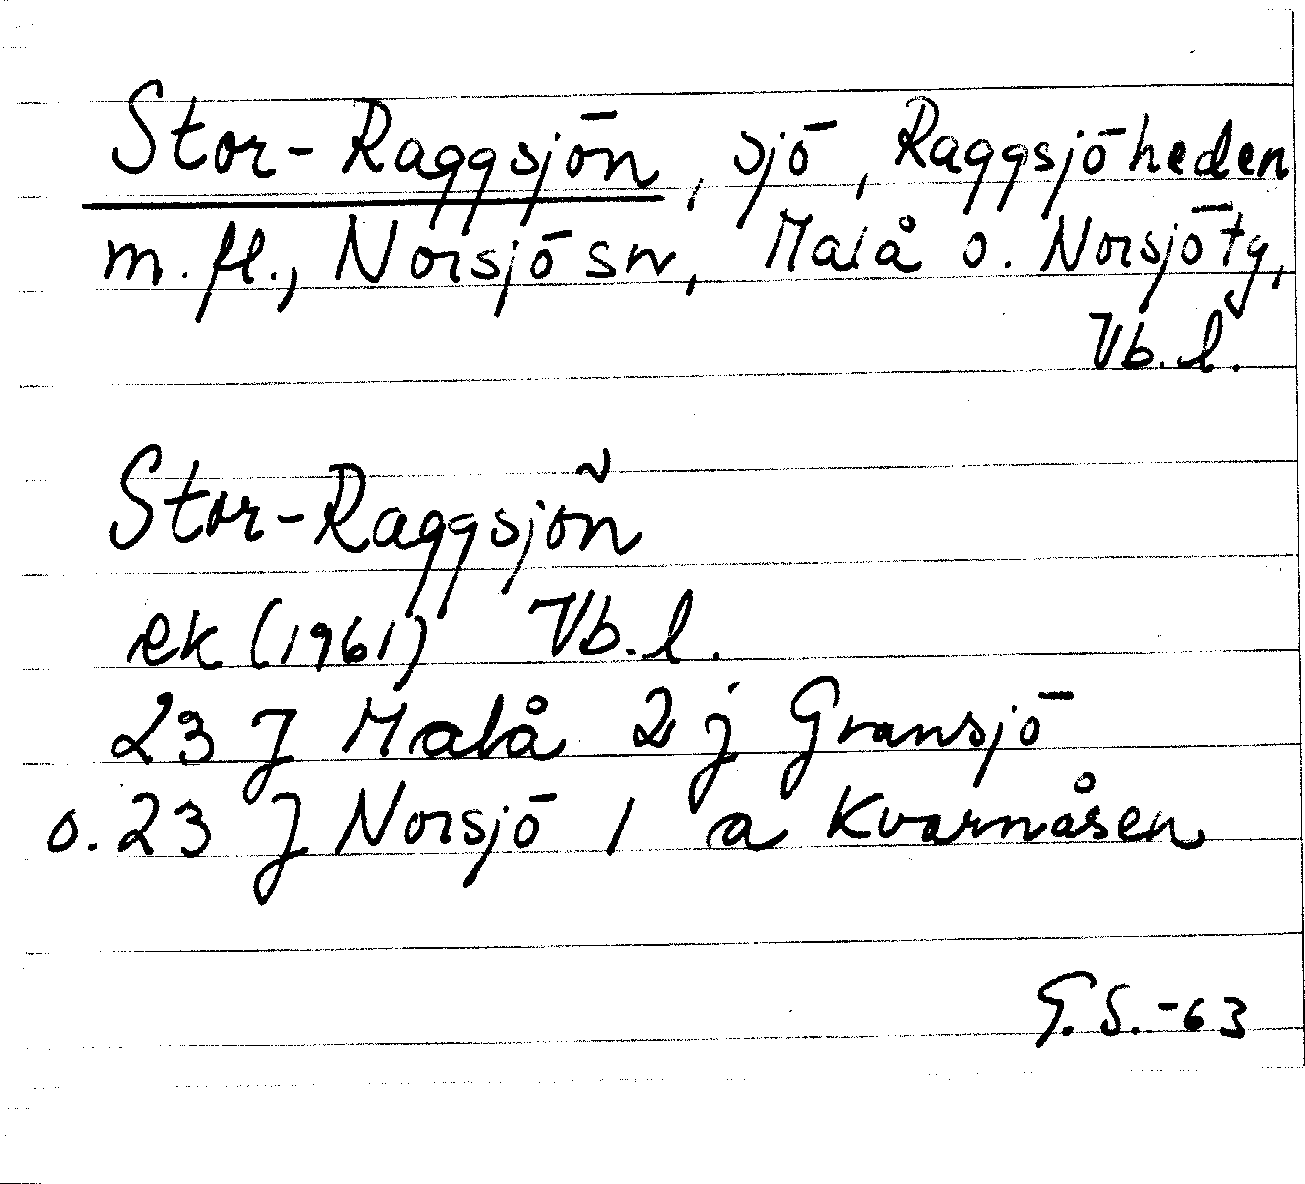 Stor-Raggsjön, sjö, Raggsjöheden
m.fl., Norsjö sn, Malå o. Norsjö tg,
Vb.l.
Stor-Raggsjön
ek (1961) Vb.l.
23 J Malå 2 j Gransjö
o. 23 J Norsjö 1 a Kvarnåsen
G.S.-63